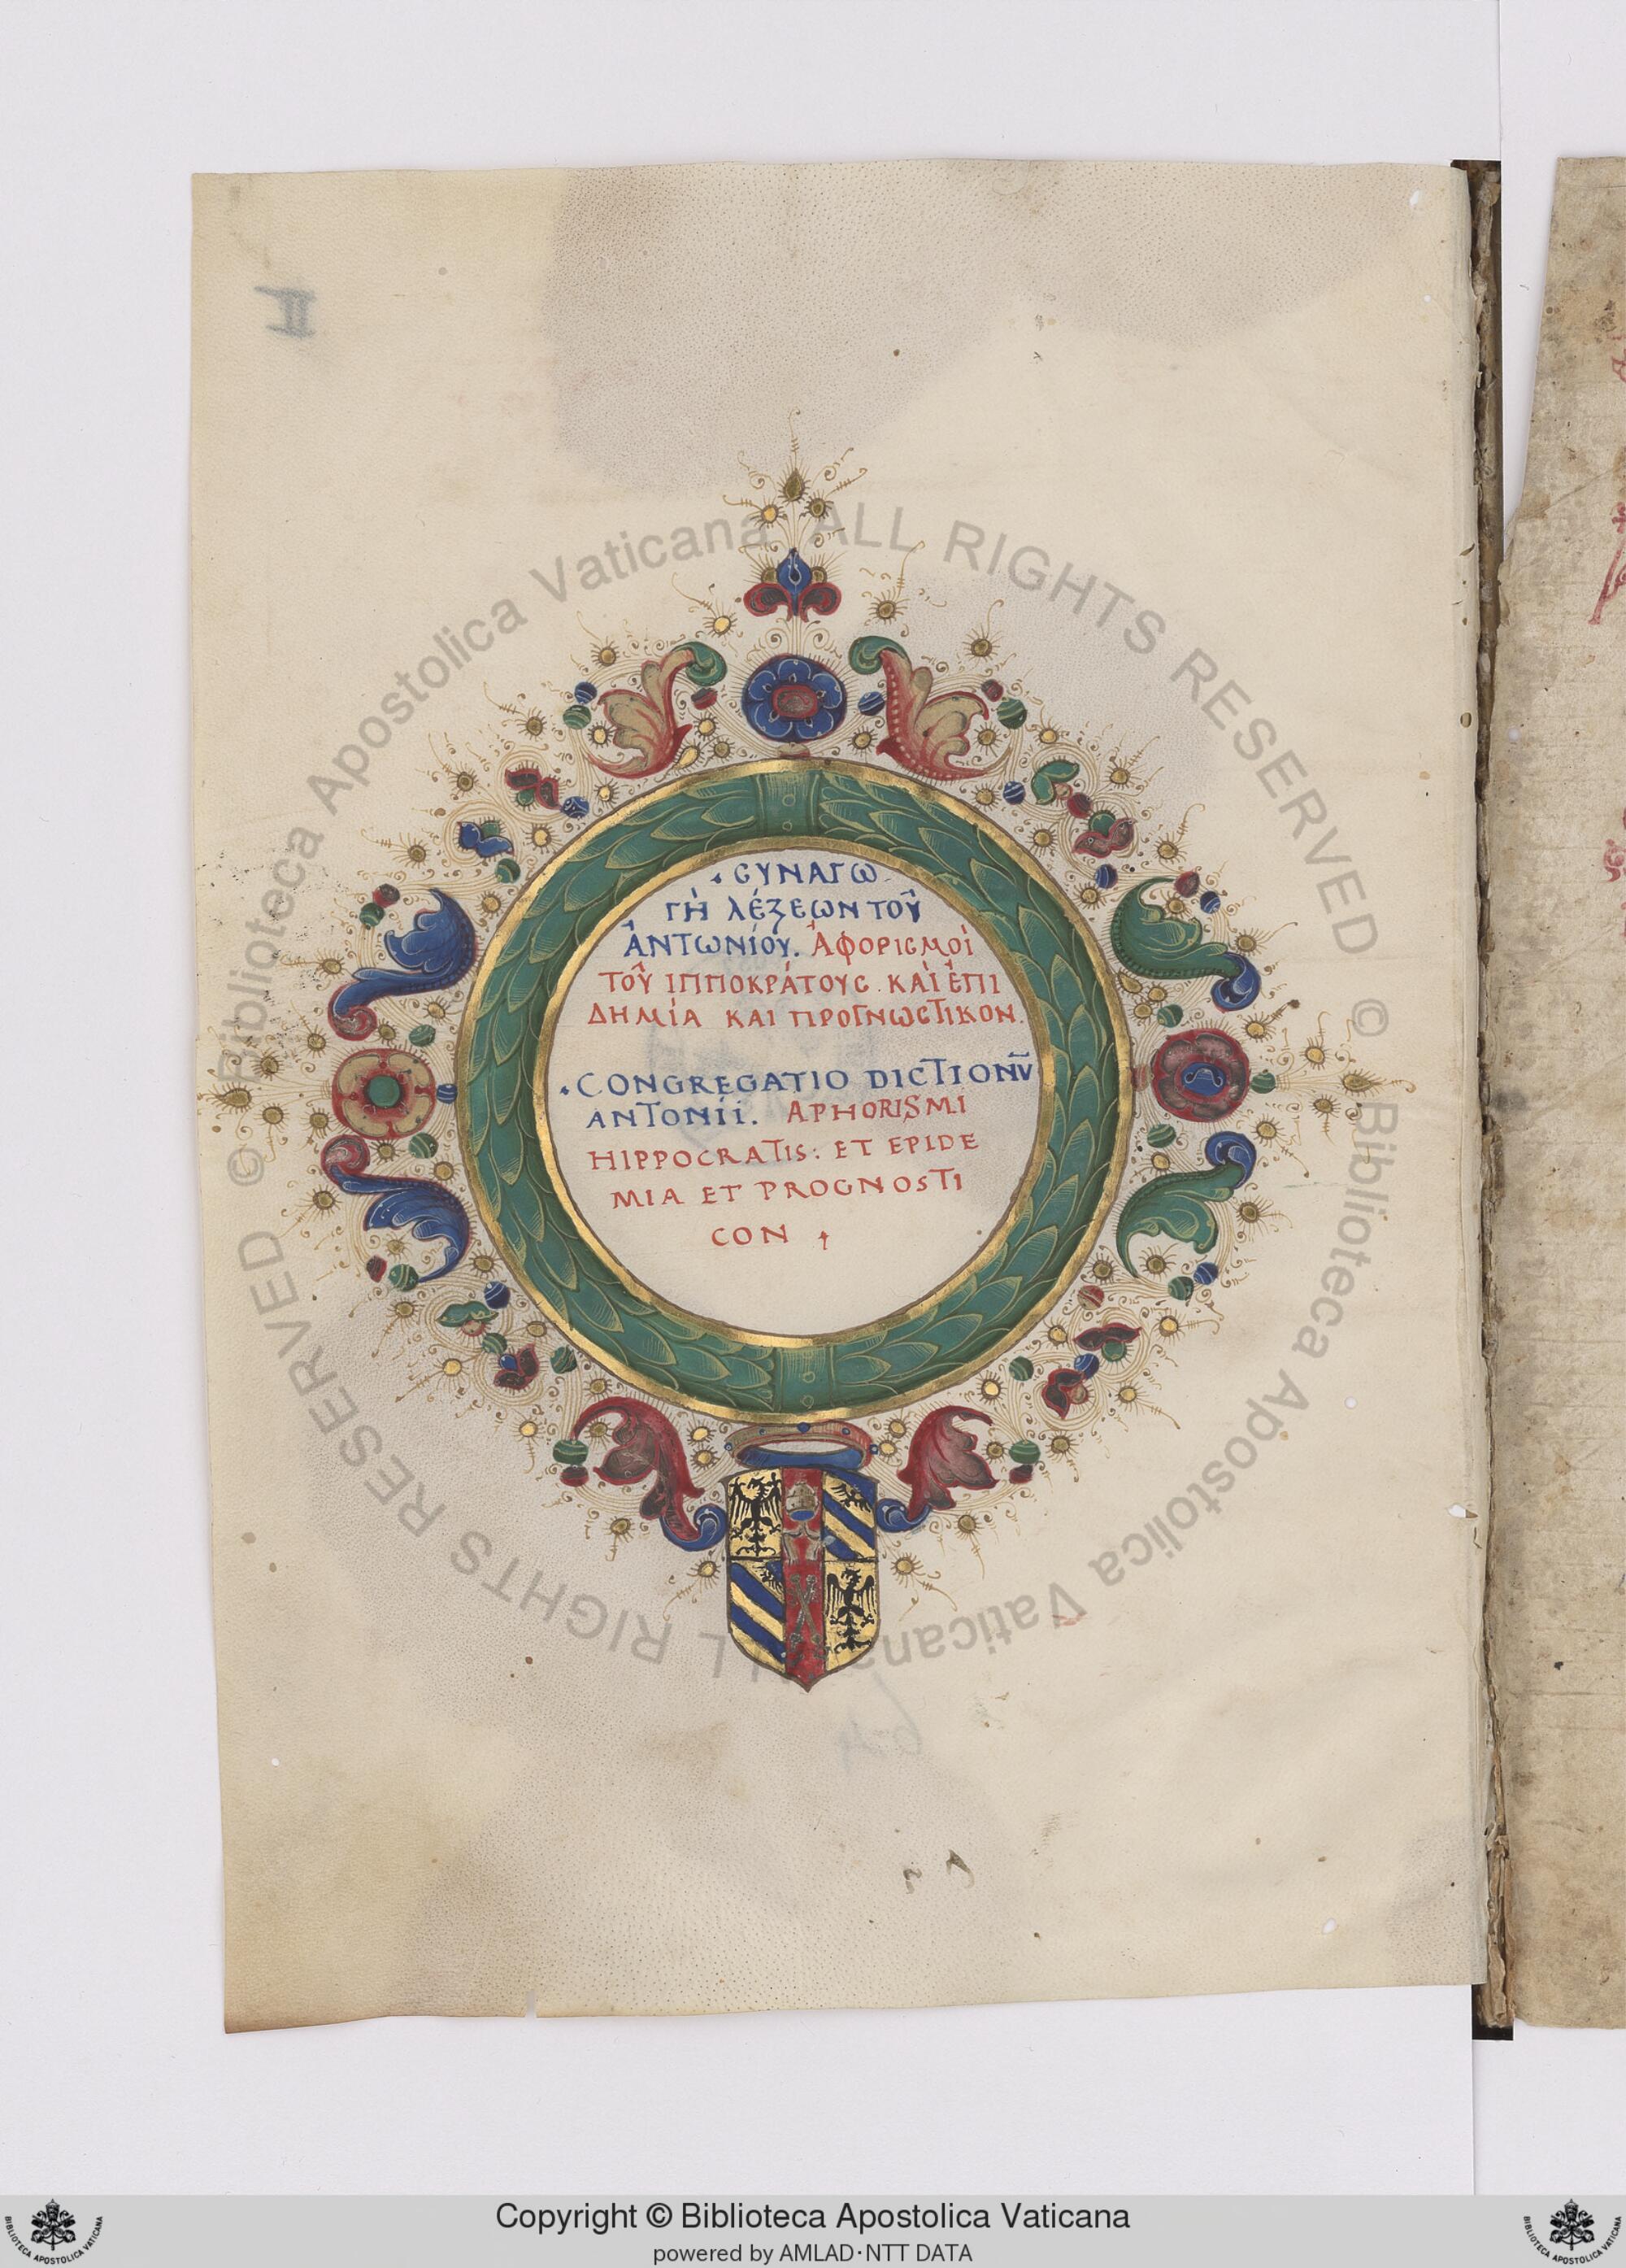 II
· ϹΥΝΑΓΩ
ΓῊ ΛΈΞΕΩΝ ΤΟΥ͂
ἈΝΤΩΝΊΟΥ. ἈΦΟΡΙϹΜΟῚ
ΤΟΥ͂ ΙΠΠΟΚΡΆΤΟΥϹ. ΚΑῚ ἘΠΙ
ΔΗΜΊΑ ΚΑΙ ΠΡΟΓΝΩϹΤΙΚΟΝ.
· CONGREGATIO DICTIONV̄
ANTONII. APHORISMI
HIPPOCRATIS: ET EPIDE
MIA ET PROGNOSTI
CON
© Biblioteca Apostolica Vaticana ALL RIGHTS RESERVED © Biblioteca Apostolica Vaticana ALL RIGHTS RESERVED
Copyright © Biblioteca Apostolica Vaticana
powered by AMLAD·NTT DATA
BIBLIOTECA APOSTOLICA VATICANA
BIBLIOTECA APOSTOLICA VATICANA